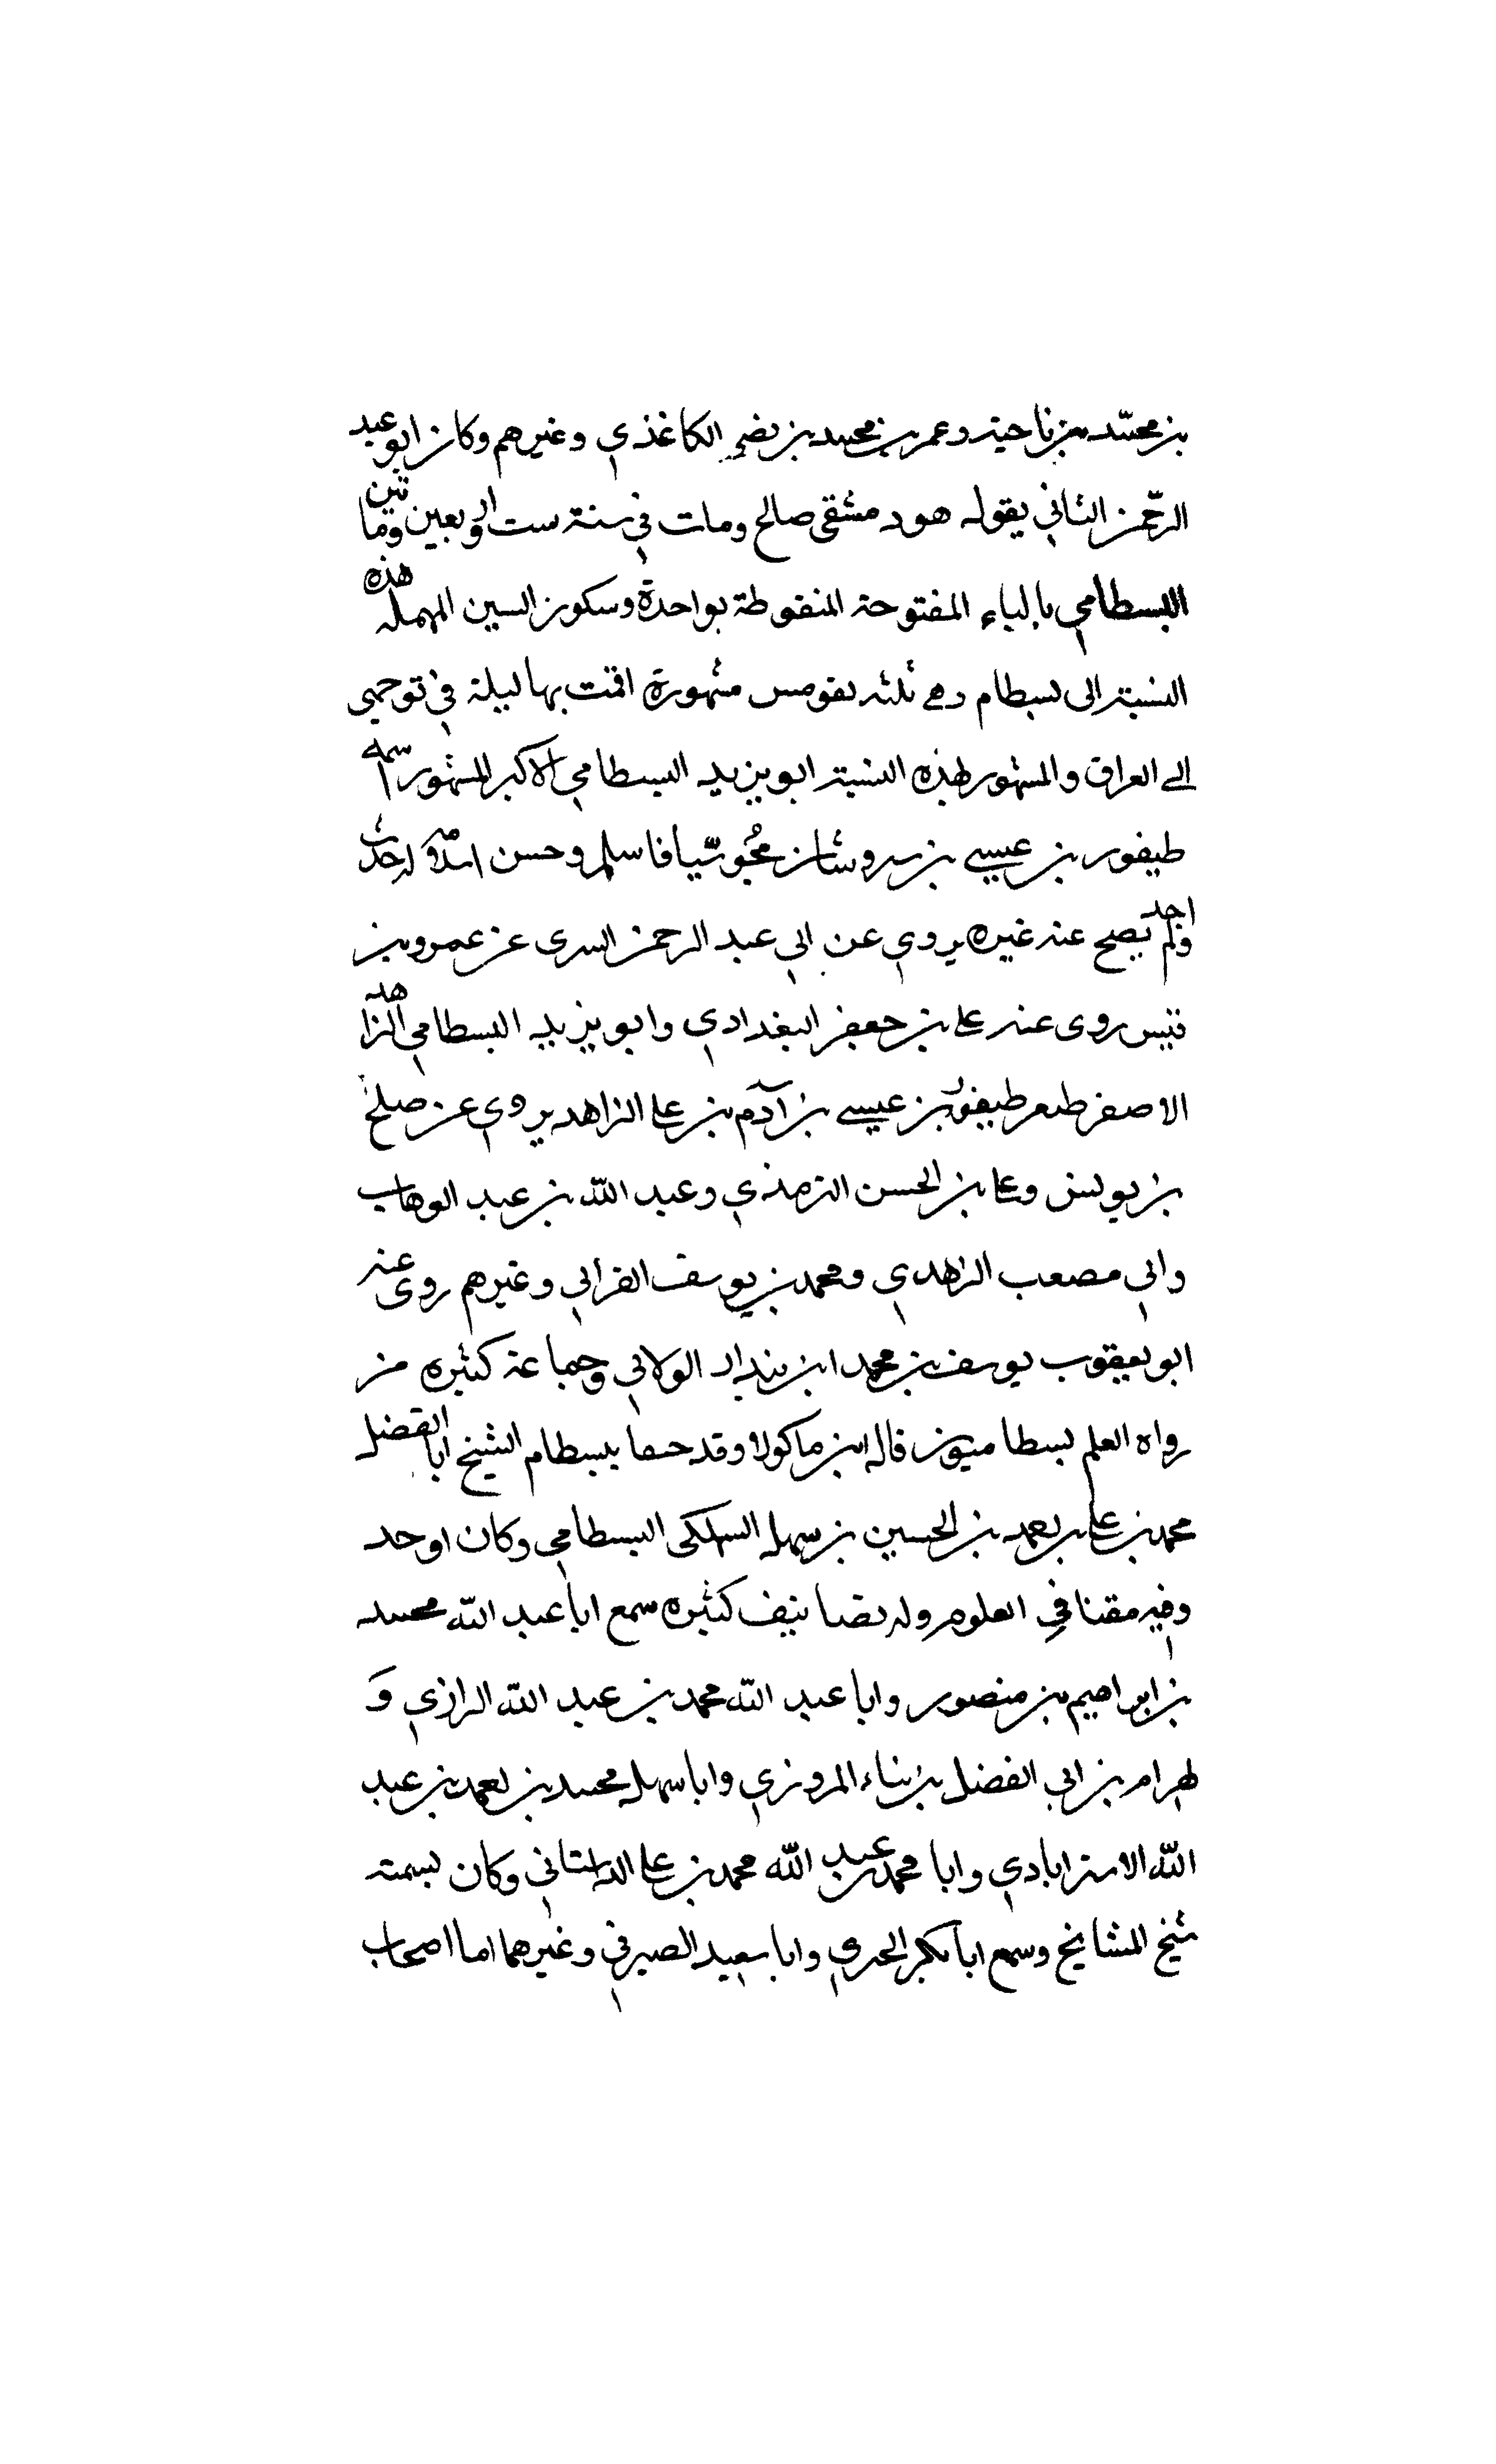 بن محمد بن ناحية وعمر بن محمد بن نصر الكاغذي وغيرهم وكان ابو عبد
الرحمن الثاني يقول هو دمشقي صالح ومات في سنة ست واربعين ومائتين
البسطامي بالباء المفتوحة المنقوطة بواحدة وسكون السين المهملة هذه
النسبة الى بسطام وهي بقومس مشهورة اقمت بها ليلة في توجهي
الى العراق والمشهور بهذه النسبة ابو يزيد البسطامي الاكبر المشهور اسمه
طيفور بن عيسى بن سروشان مجوسيا فاسلم وحسن اسلامه له حديث
واحد ولم يصح عنه غيره يروي عن ابي عبد الرحمن السري عن عمرو بن
قيس روى عنه علي بن جعفر البغدادي وابو يزيد البسطامي الزاهد
الاصغر طيفور بن عيسى بن آدم بن علي الزاهد يروي عن صلح
بن يونس وعلي بن الحسن الترمذي وعبد الله بن عبد الوهاب
وابي مصعب الزاهدي ومحمد بن يوسف الفرابي وغيرهم روى عنه
ابو يعقوب يوسف بن محمد ابن بندار الولابي وجماعة كثيره من
رواه العلم بسطاميون قاله ابن ماكولا وقد بسطام الشيخ ابا الفضل
محمد بن علي بن احمد بن الحسين بن سهل السهلكي البسطامي وكان اوحد
وقته مفتنا في العلوم وله تصانيف كثيره سمع ابا عبد الله محمد
بن ابراهيم بن منصور وابا عبد الله محمد بن عبد الله الرازي و
بهرام بن ابي الفضل بن المروزي وابا سهل محمد بن احمد بن عبد
الله الاسترابادي وابا محمد بن عبد الله محمد بن علي الداستاني وكان بسمته
شيخ المشايخ وسمع ابا بكر الحيري وابا سعيد الصيرفي وغيرهما اما اصحاب